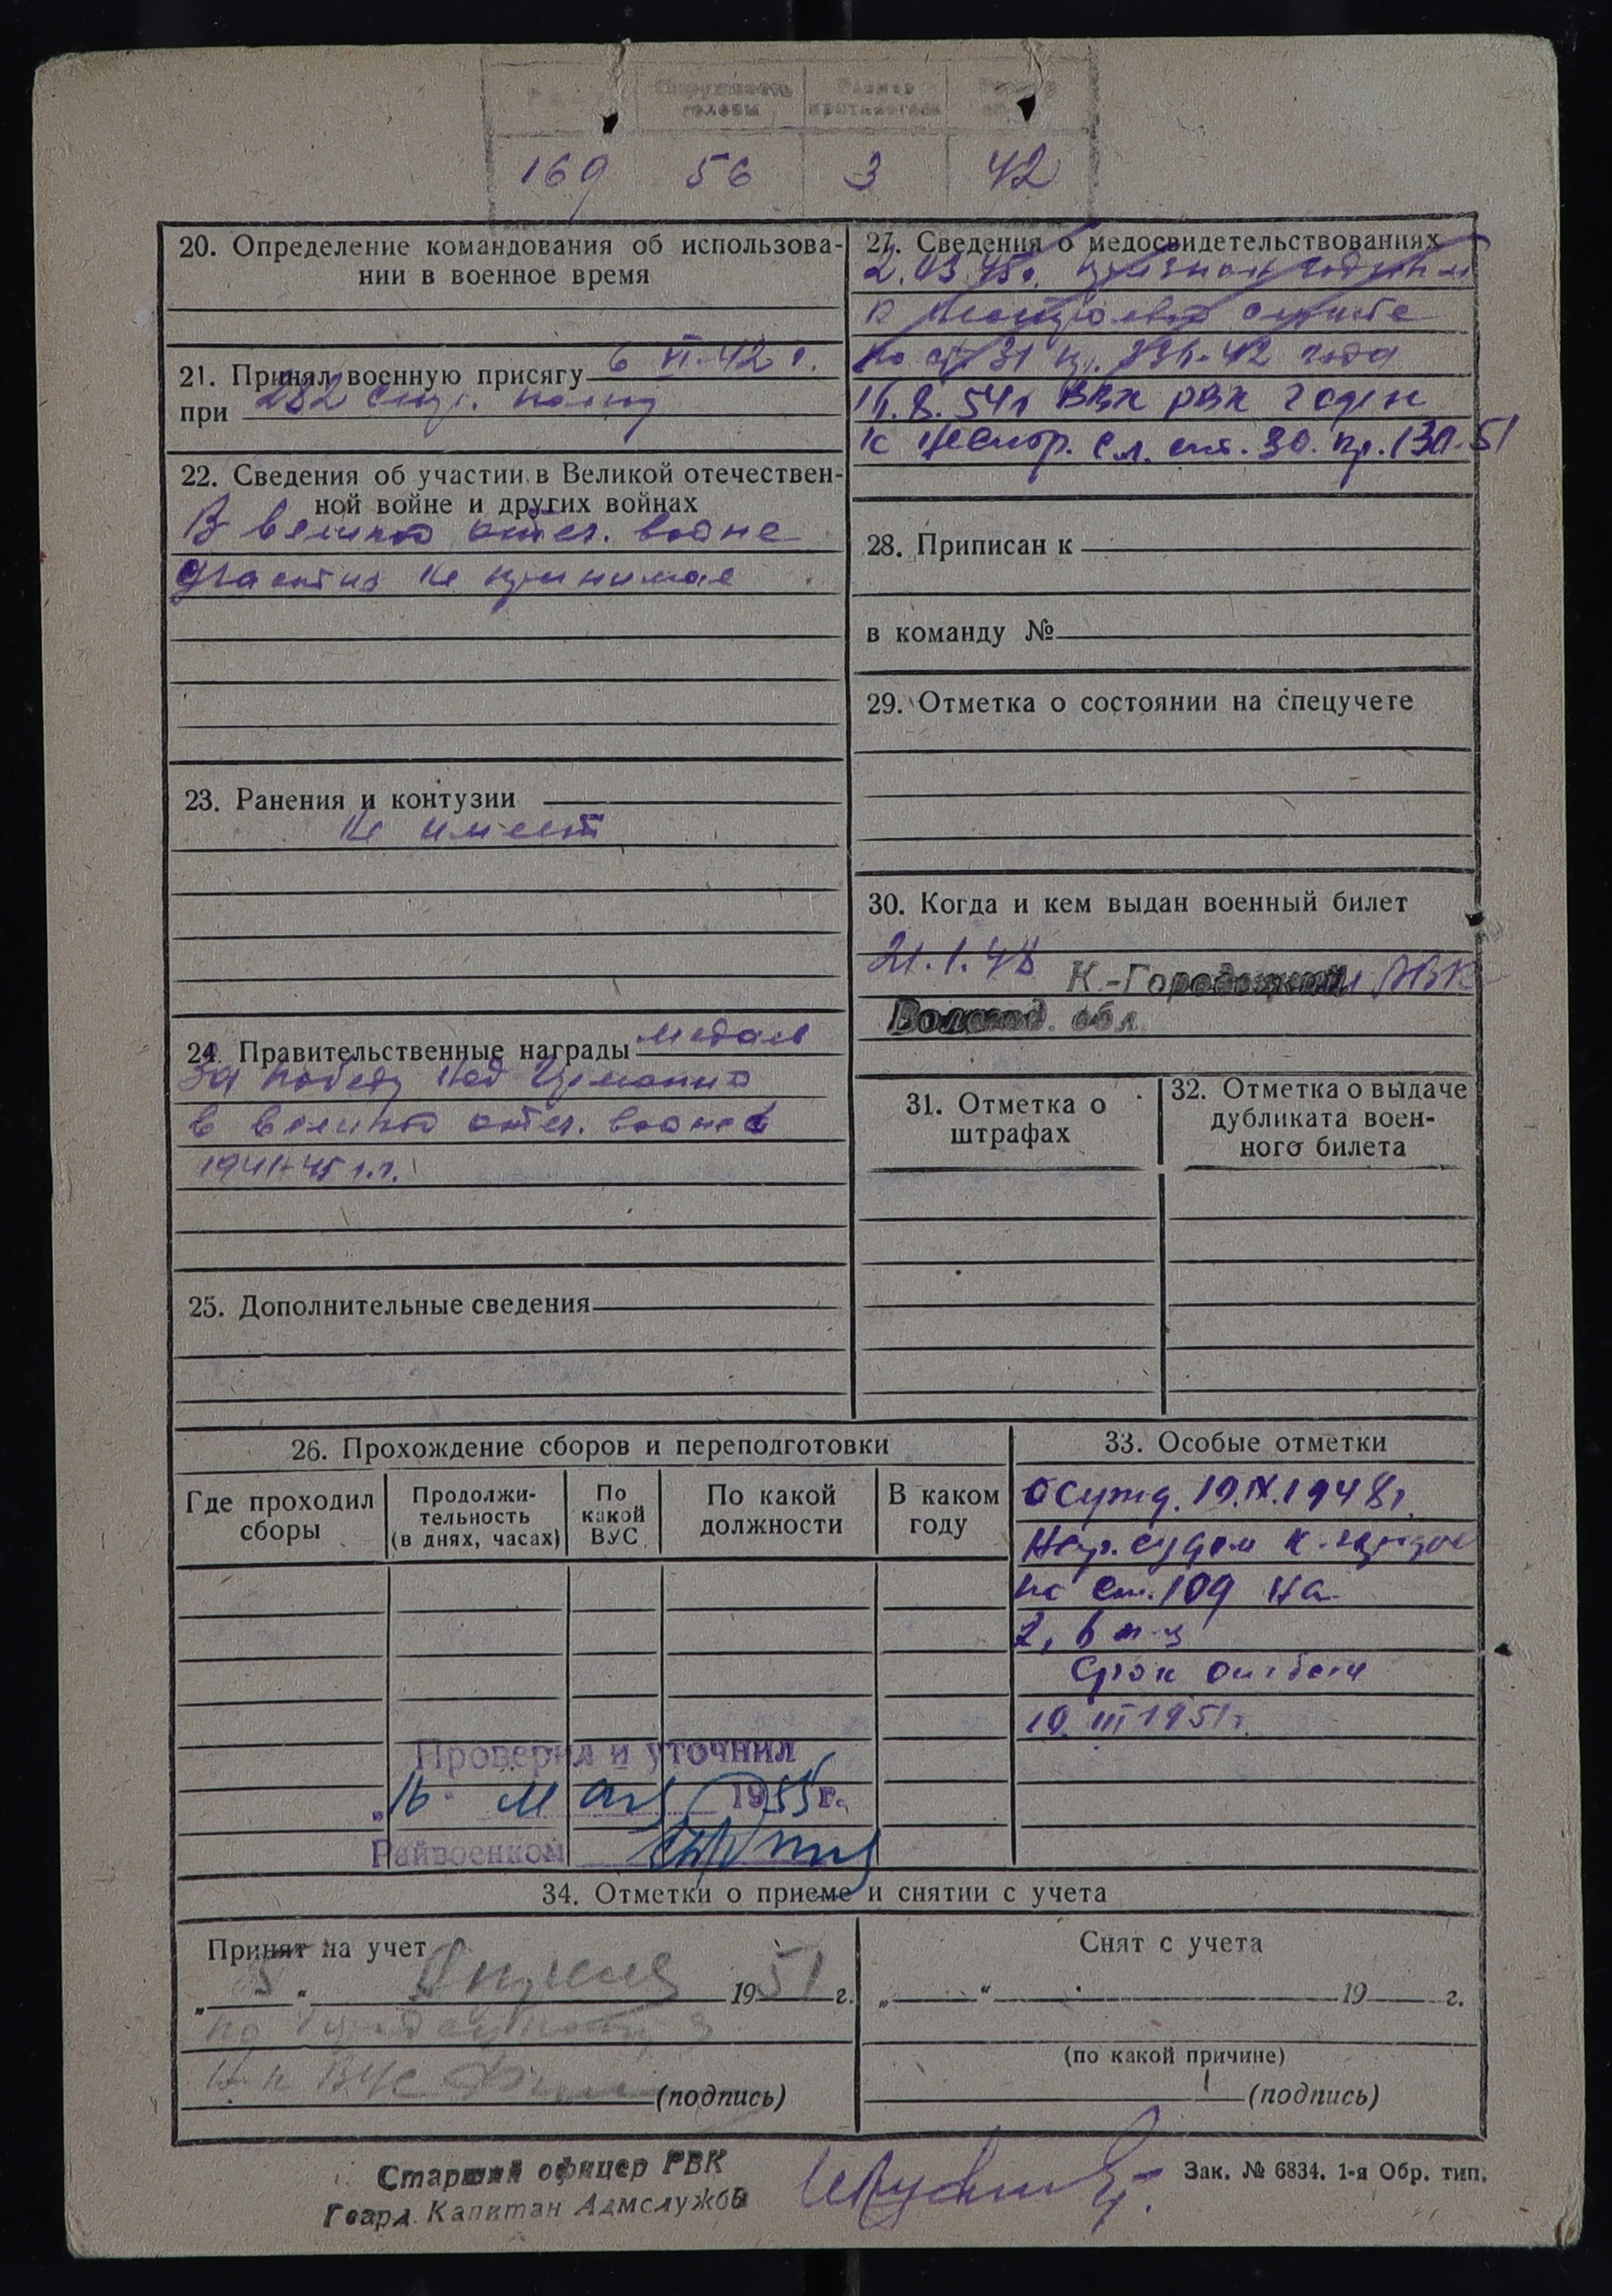 Окружность головы
Размер
169 56 3 42
20. Определение командования об использова-
нии в военное время
21. Принял военную присягу 6 VI-42 г.
при 282 стр. полку
22. Сведения об участии в Великой отечествен-
ной войне и других войнах
В великой отеч. войне
участия не принимал
23. Ранения и контузии
Не имеет
24. Правительственные награды медаль
За победу над Германией
в великой отеч. войне
1941-45 г.г.
25. Дополнительные сведения
27. Сведения о медосвидетельствованиях
2.03.45г. признан годным
к нестроевой службе
по ст 31 пр. 336-42 года
11.8.54г ВВК РВК годен
к нестр. сл. ст. 30. пр. 130-51
28. Приписан к
в команду №
29. Отметка о состоянии на спецучете
30. Когда и кем выдан военный билет
21.1.48 К.-Городецким РВК
Вологод. обл.
31. Отметка о
штрафах
32. Отметка о выдаче
дубликата воен-
ного билета
26. Прохождение сборов и переподготовки
Где проходил
сборы
Продолжи-
тельность
(в днях, часах)
По
какой
ВУС
По какой
должности
В каком
году
33. Особые отметки
Осужд. 19.IX.1948г.
Нар. судом К-
по ст. 109 на
2, 6 м-ц
Срок отбыл
19.III 1951г.
Проверил и уточнил
„16" мая 1955 г.
Райвоенком
34. Отметки о приеме и снятии с учета
Принят на учет
„5" Апреля 1951 г.
по
Н-к ВУС (подпись)
Снят с учета
„ " 19 г.
(по какой причине)
(подпись)
Старший офицер РВК
Гвард. Капитан Адмслужбы
Зак. № 6834. 1-я Обр. тип.